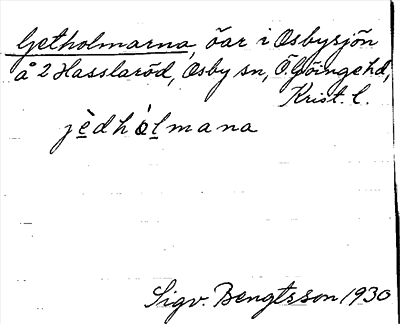 Getholmarna, öar i Osbysjön
å 2 Hasslaröd, Osby sn, Ö. Göinge hd,
Krist. l.
jèdhólmana
Sigv. Bengtsson 1930